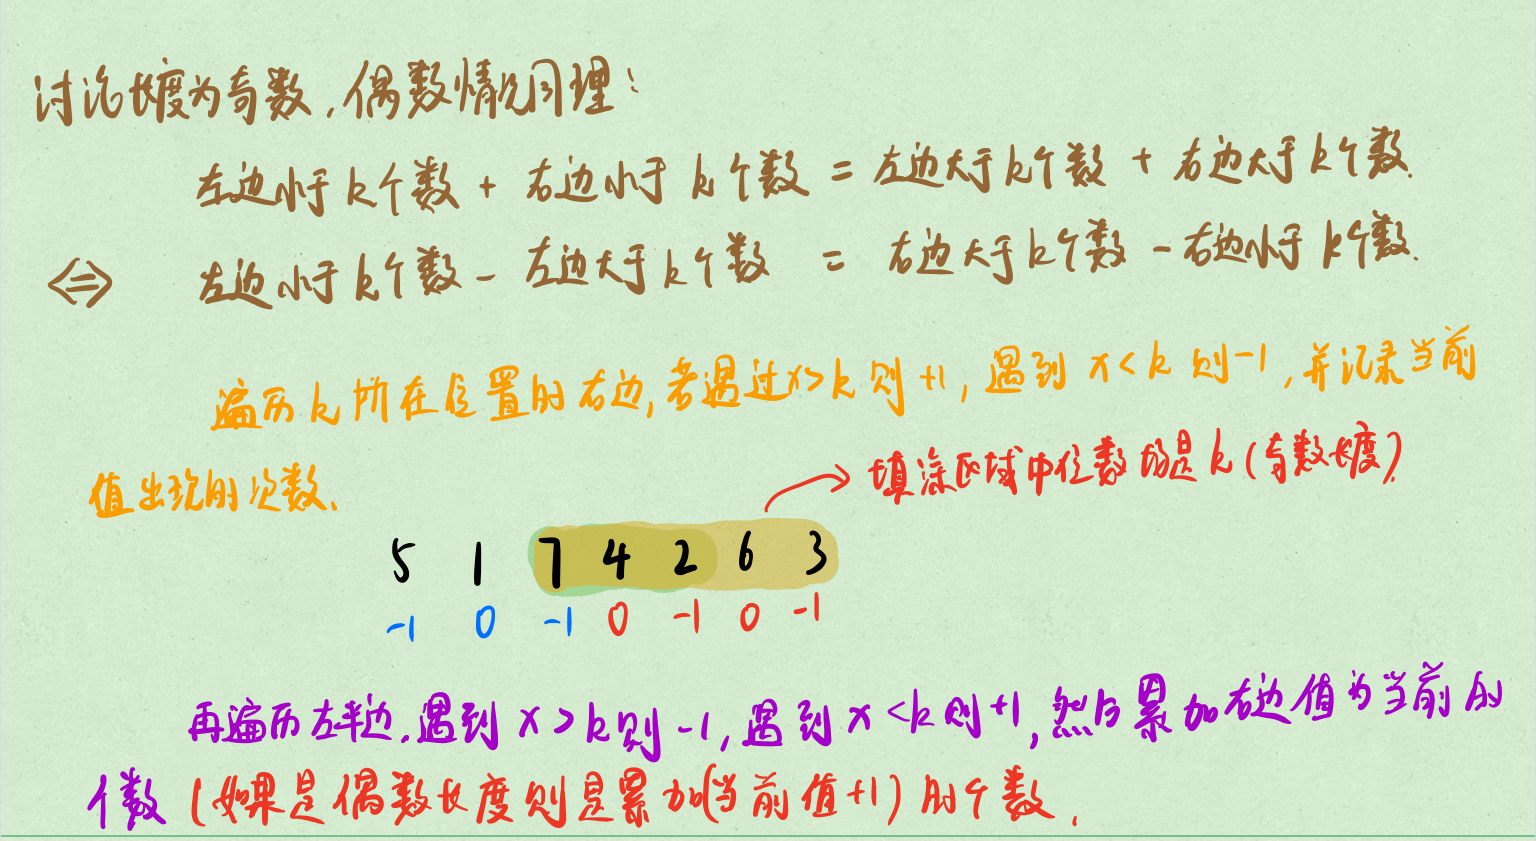 讨论长度为奇数,偶数情况同理:
左边小于k个数 + 右边小于k个数 = 左边大于k个数 + 右边大于k个数.
⇔ 左边小于k个数 - 左边大于k个数 = 右边大于k个数 - 右边小于k个数.
遍历k所在位置的右边,若遇过x>k则+1,遇到x<k则-1,并记录当前
值出现的次数.
填涂区域中位数均是k(奇数长度)
5 1 7 4 2 6 3
-1 0 -1 0 -1 0 -1
再遍历左半边.遇到x>k则-1,遇到x<k则+1,然后累加右边值为当前的
个数(如果是偶数长度则是累加(当前值+1)的个数.